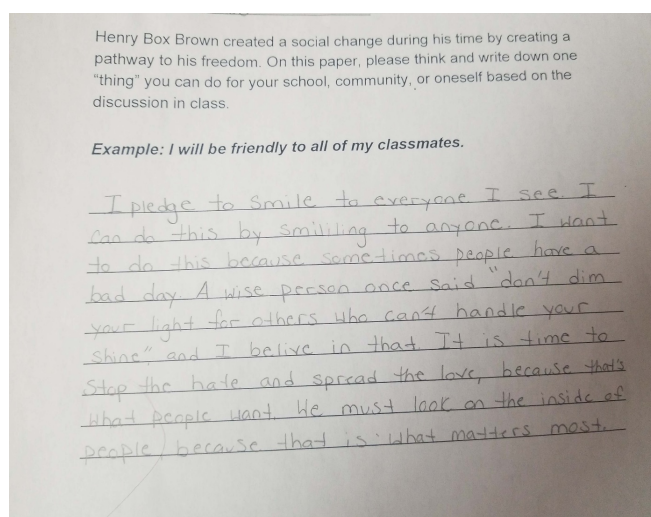 Henry Box Brown created a social change during his time by creating a
pathway to his freedom. On this paper, please think and write down one
"thing" you can do for your school, community, or oneself based on the
discussion in class.
Example: I will be friendly to all of my classmates.
I pledge to smile to everyone I see. I
can do this by smililing to anyone. I want
to do this because sometimes people have a
bad day. A wise person once said "don't dim
your light for others who can't handle your
shine" and I belive in that. It is time to
stop the hate and spread the love, because that's
what people want. We must look on the inside of
people, because that is what matters most.